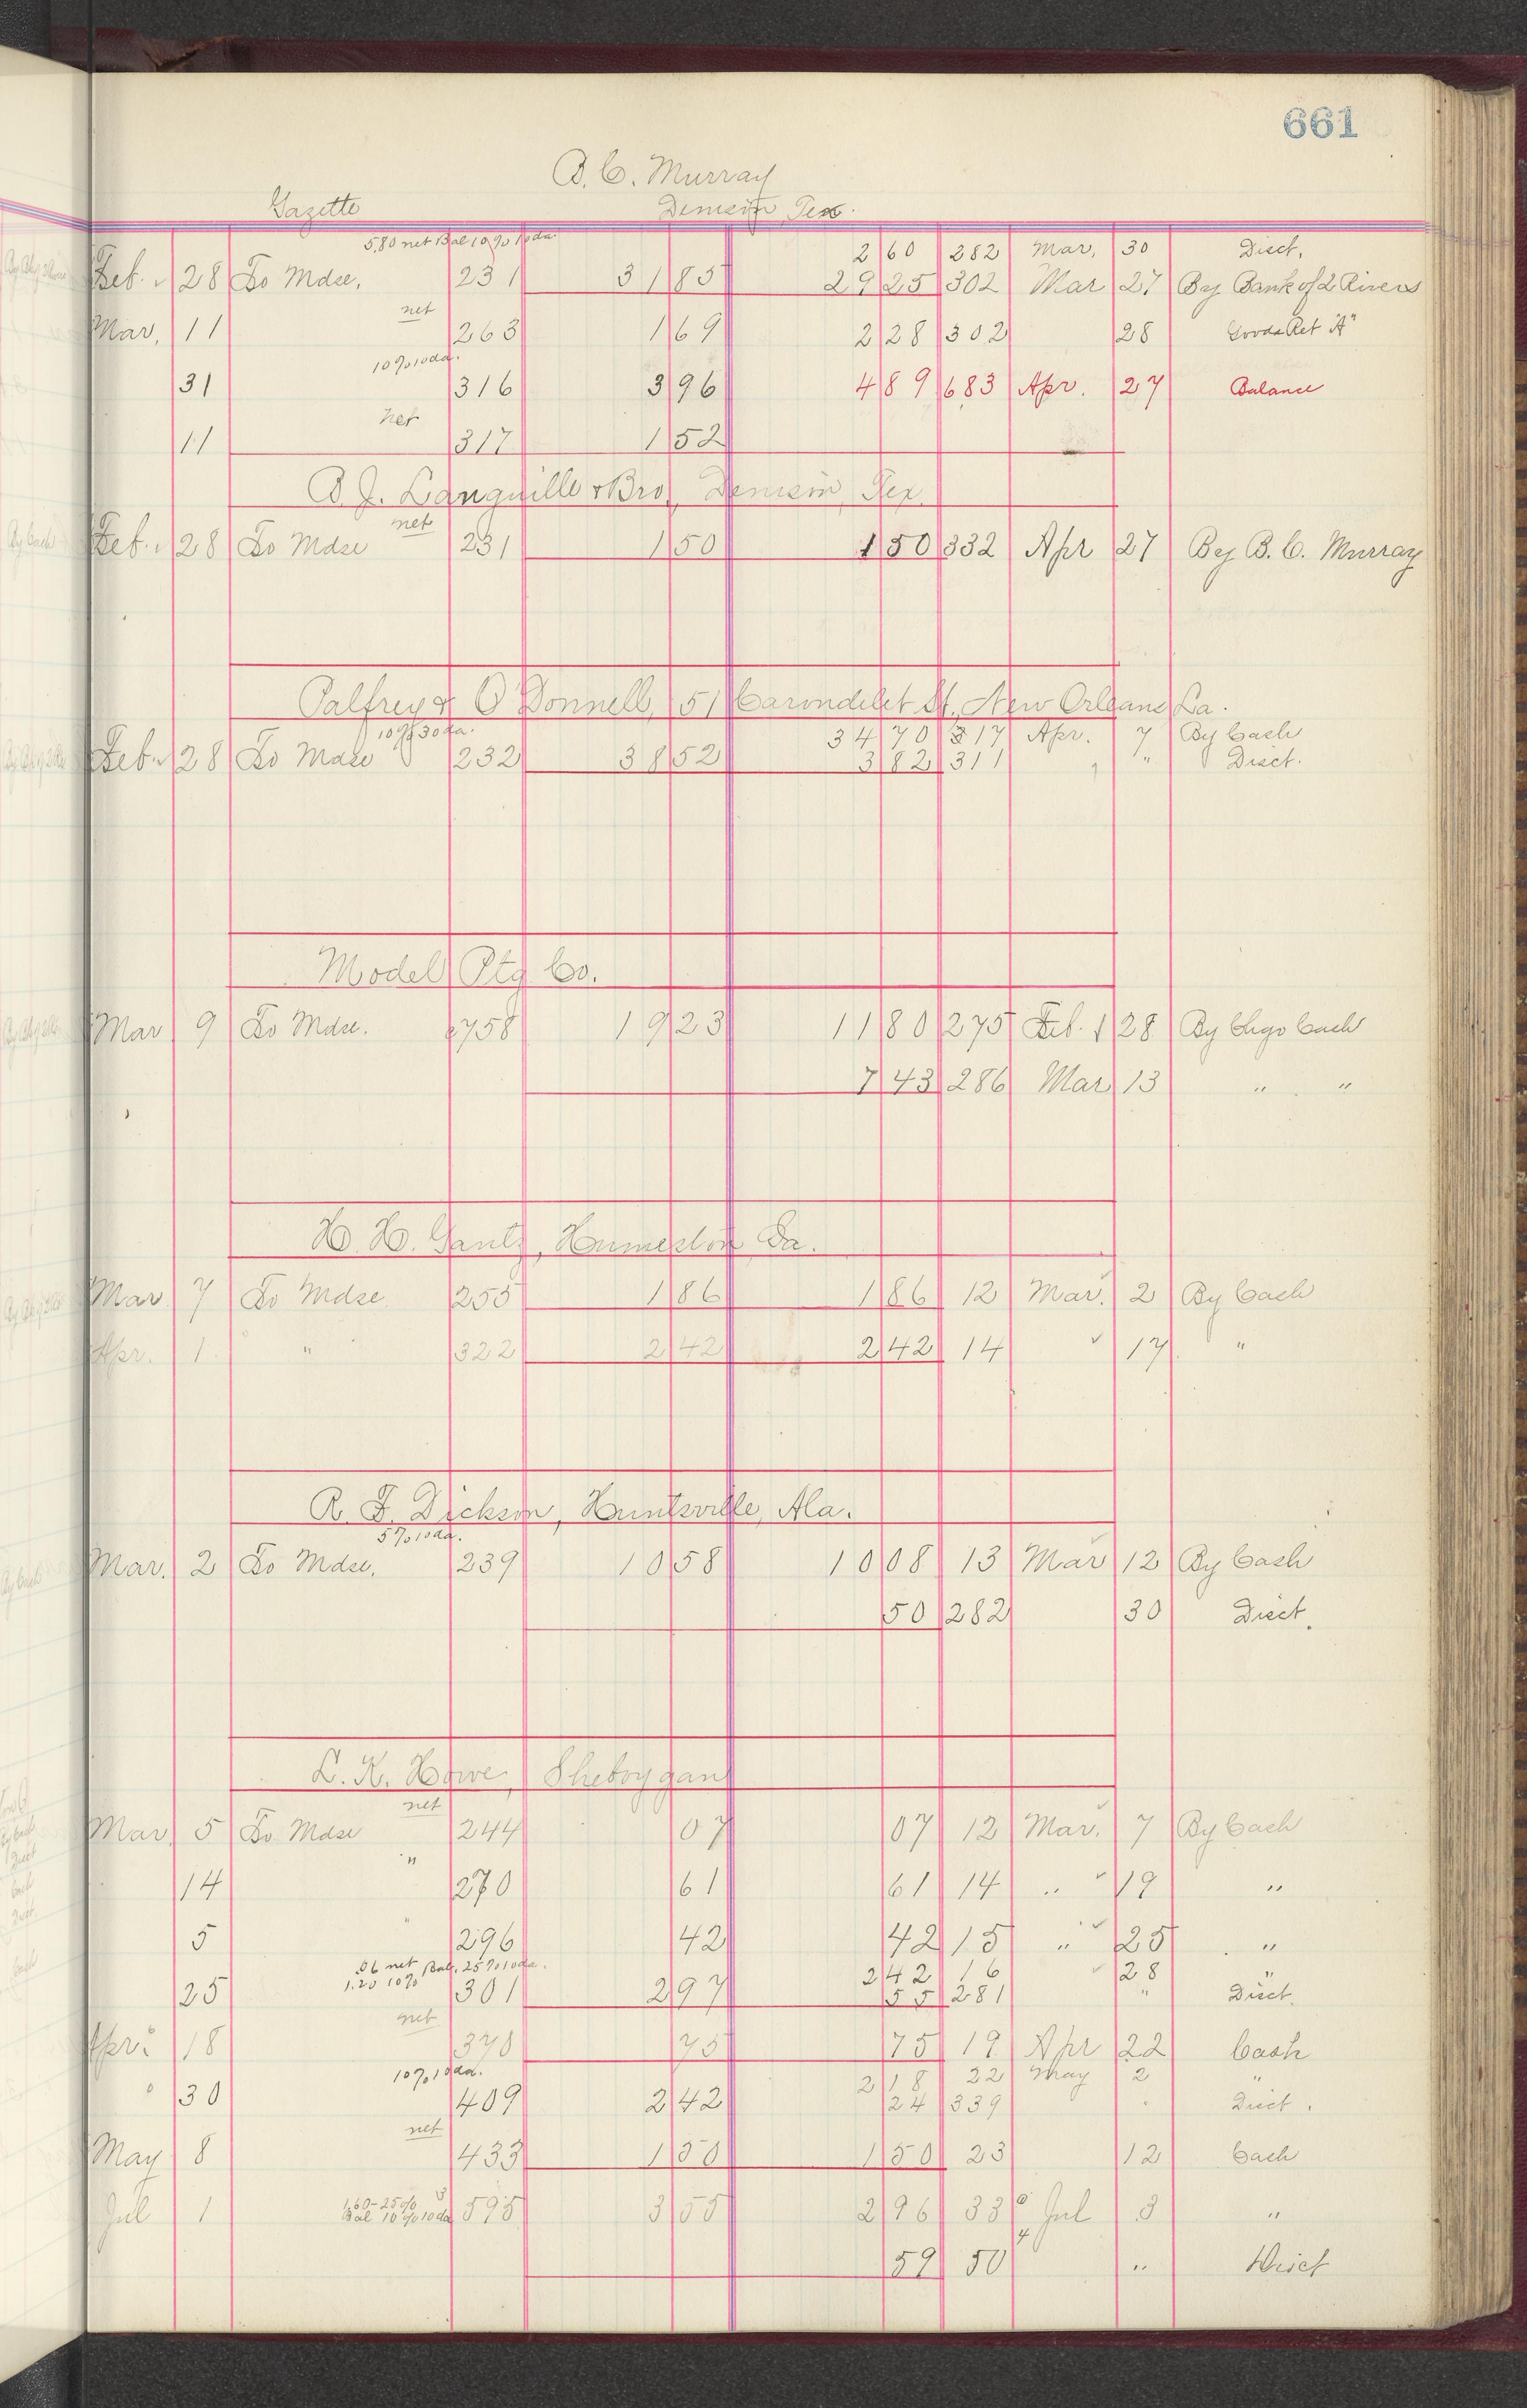 661
B. C. Murray
Gazette Denison, Tex.
5.80 net Bal 10% 10 da. 2 60 282 Mar. 30 Disct.
Feb. 28 To Mdse. 231 31 85 29 25 302 Mar 27 By Bank of 2 Rivers
net
Mar. 11 263 1 69 2 28 302 28 Goods Ret "A"
10% 10 da.
31 316 3 96 4 89 683 Apr. 27 Balance
net
11 317 1 52
B. J. Languille & Bro, Denison, Tex.
net
Feb. 28 To Mdse 231 1 50 1 50 332 Apr 27 By B. C. Murray
Palfrey & O'Donnell, 51 Carondelet St. New Orleans, La.
10% 30 da. 34 70 317 Apr. 7 By Cash
Feb. 28 To Mdse 232 38 52 3 82 311 " Disct.
Model Ptg Co.
Mar 9 To Mdse. 758 19 23 11 80 275 Feb. 28 By Chgo Cash
7 43 286 Mar 13 " "
H. H. Gantz, Humeston Ia.
Mar 7 To Mdse 255 1 86 1 86 12 Mar. 2 By Cash
Apr. 1 " 322 2 42 2 42 14 17 "
R. F. Dickson, Huntsville, Ala.
5% 10 da.
Mar. 2 To Mdse. 239 10 58 10 08 13 Mar 12 By Cash
50 282 30 Disct.
L. K. Howe, Sheboygan
net
Mar. 5 To Mdse 244 07 07 12 Mar. 7 By Cash
14 " 270 61 61 14 " 19 "
5 " 296 42 42 15 " 25 "
.06 net Bal. 25% 10 da. 2 42 16 28 "
25 1.20 10% 301 2 97 55 281 " Disct.
net
Apr. 18 370 75 75 19 Apr 22 Cash
10% 10 da. 2 18 22 May 2 "
" 30 409 2 42 24 339 Disct.
net
May 8 433 1 50 1 50 23 12 Cash
1.60-25%
Jul 1 Bal 10% 10 da 595 3 55 2 96 33 Jul 3 "
59 50 " Disct